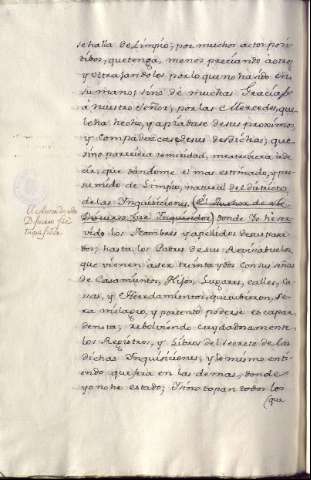 se halla de Limpio; por muchos actos posi-
tivos, que tenga, menos preciando à otros
y ultrajandolos por lo que no han do en
su mano; sino dè muchas Gracias
à nuestro Señor, por las Mercedes, que
le ha hecho, y apiadase de sus proximos
y compadezcase de sus desdichas; que
sino pareciera temeridad, me atreviera à de-
cir, que dandome el mas estirado, y pre-
sumido de Limpio, natural del districto,
de las Inquisiciones, (El Author de este
Discurso fue Inquisidor) donde Yo he ser-
vido los Nombres y apellidos de sus Pa-
dres, hasta los Padres de sus Revisabuelos
que vienen à ser treinta y dos con sus años
de Casamientos, Hijos, Lugares, calles, Ca-
sas, y Heredamientos, que tubieron, se-
ra milagro, y portento poderse escapar
de nota; rebolviendo cuydadosamente
los Registros, y Libros del Secreto de las
dichas Inquisiciones, y lo mismo enti-
endo, que sera en las demas, donde
yo no he estado; y sino topan todos los
que
El Author de este
Discurso fue